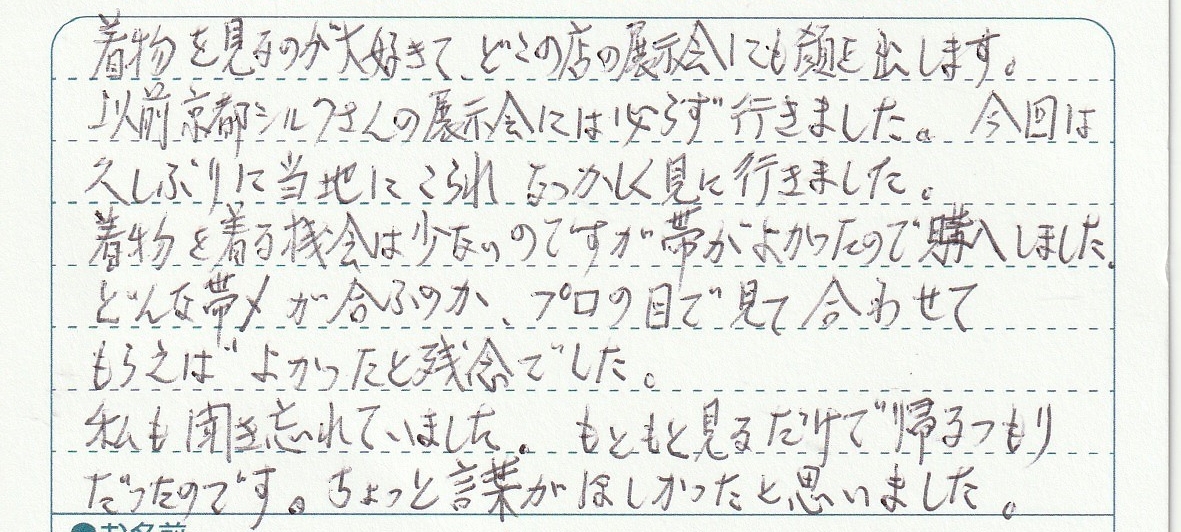 着物を見るのが大好きで、どこの店の展示会にも顔を出します。
以前京都シルクさんの展示会には必らず行きました。今回は
久しぶりに当地にこられなつかしく見に行きました。
着物を着る機会は少ないのですが帯がよかったので購入しました。
どんな帯〆が合ふのか、プロの目で見て合わせて
もらえばよかったと残念でした。
私も聞き忘れていました。もともと見るだけで帰るつもり
だったのです。ちょっと言葉がほしかったと思いました。